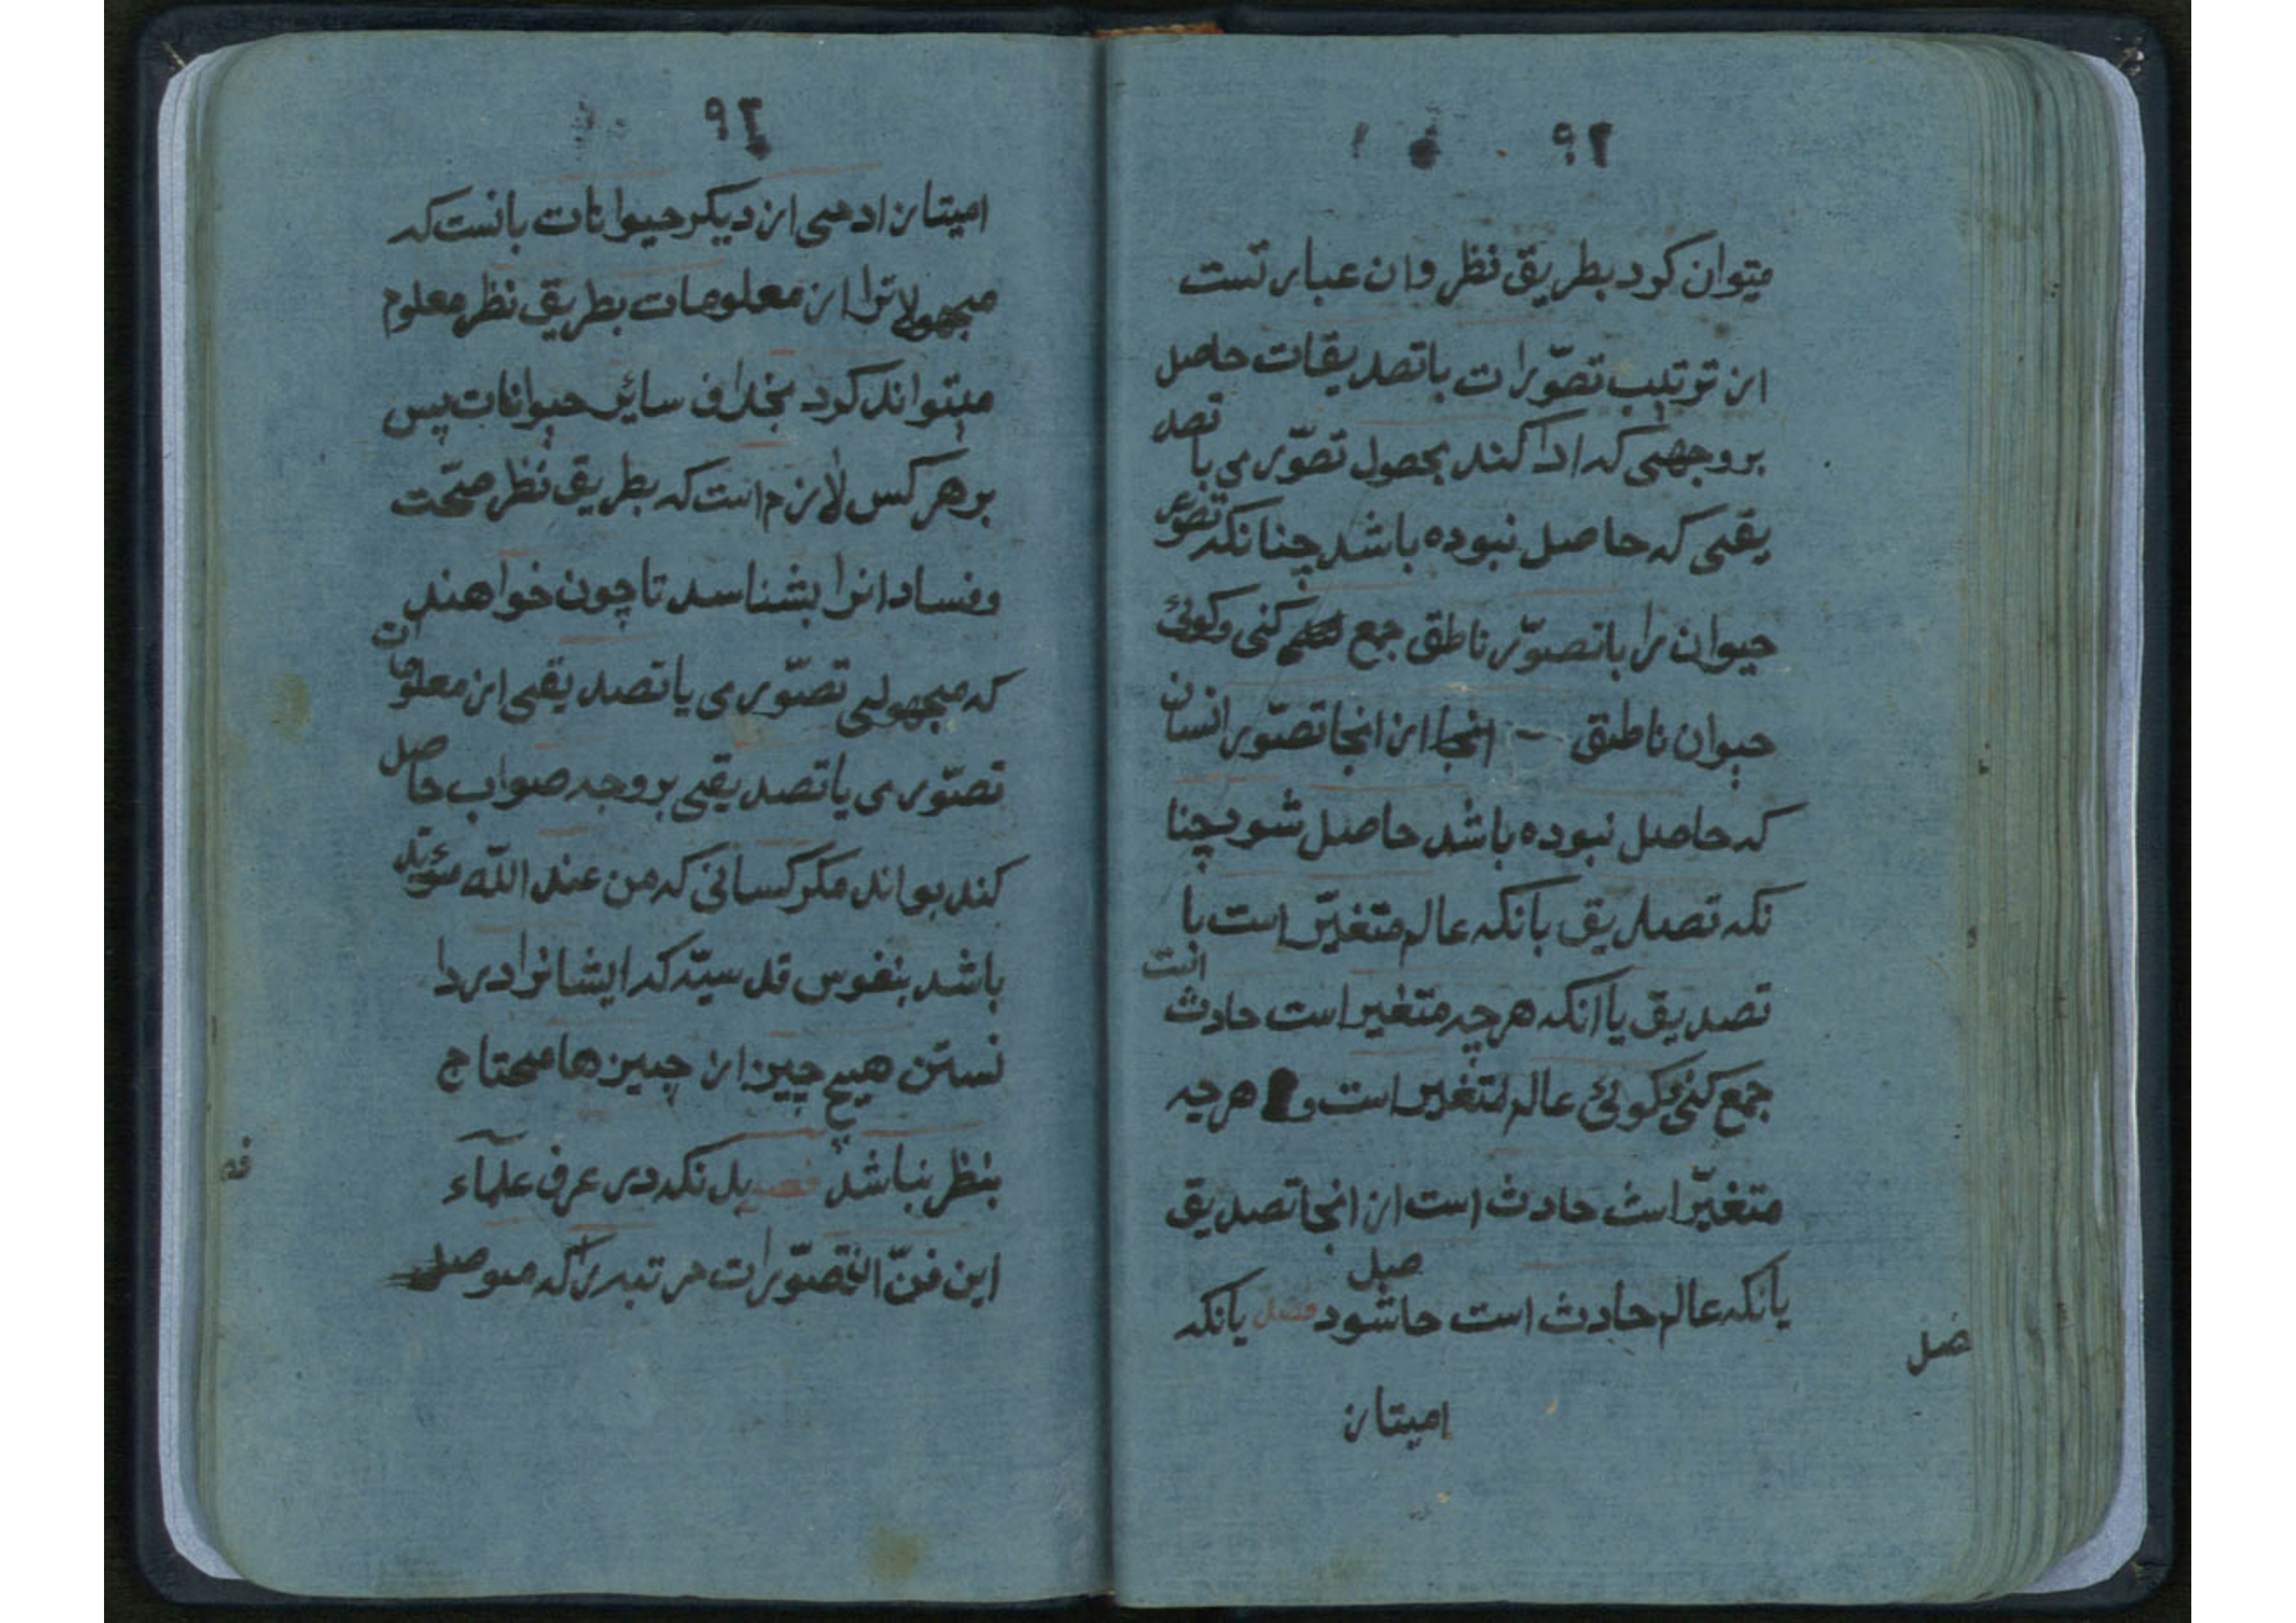 ٩٢
میتوان کرد بطریق نظر وان عبارتست
از ترتیب تصوّرات با تصدیقات حاصل
بر وجهی که ادا کند بحصول تصوّری با تصد
یقی که حاصل نبوده باشد چنانکه تصوّر
حیوان را با تصوّر ناطق جمع کنی وکوئی
حیوان ناطق انجا از انجا تصوّر انسان
که حاصل نبوده باشد حاصل شود چنا
نکه تصدیق بانکه عالم متغیّر است با
تصدیق یا انکه هر چه متغیر است حادث است
جمع کنی وکوئی عالم متغیر است و هر چه
متغیّر است حادث است از انجا تصدیق
یانکه عالم حادث است حاصل شود فصل یانکه
فصل
امیتاز
٩٣
امیتاز ادمی از دیکر حیوانات بانست که
مجهولاترا از معلومات بطریق نظر معلوم
میتواند کرد بخلاف سائر حیوانات پس
بر هر کس لازم است که بطریق نظر صحّت
وفساد انرا بشناسد تا چون خواهند
که مجهولی تصوّری یا تصدیقی از معلومات
تصوّری یا تصدیقی بر وجه صواب حاصل
کند بواند مکر کسانی که من عند اللّه مؤید
باشد بنفوس قدسیّه که ایشانرا در دا
نستن هیچ چیز از چیز ها محتاج
بنظر نباشد فصل بدانکه در عرف علمآء
این فنّ التصوّرات مرتبه را که موصل